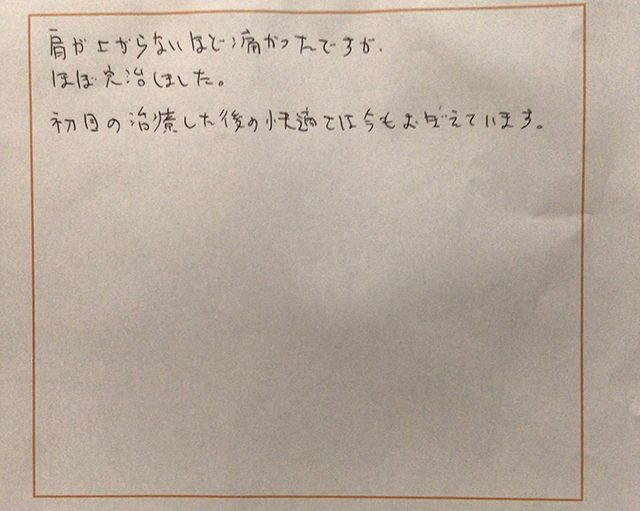 肩が上がらないほど痛かったですが、
ほぼ完治しました。
初回の治療した後の快適さは今もおぼえています。